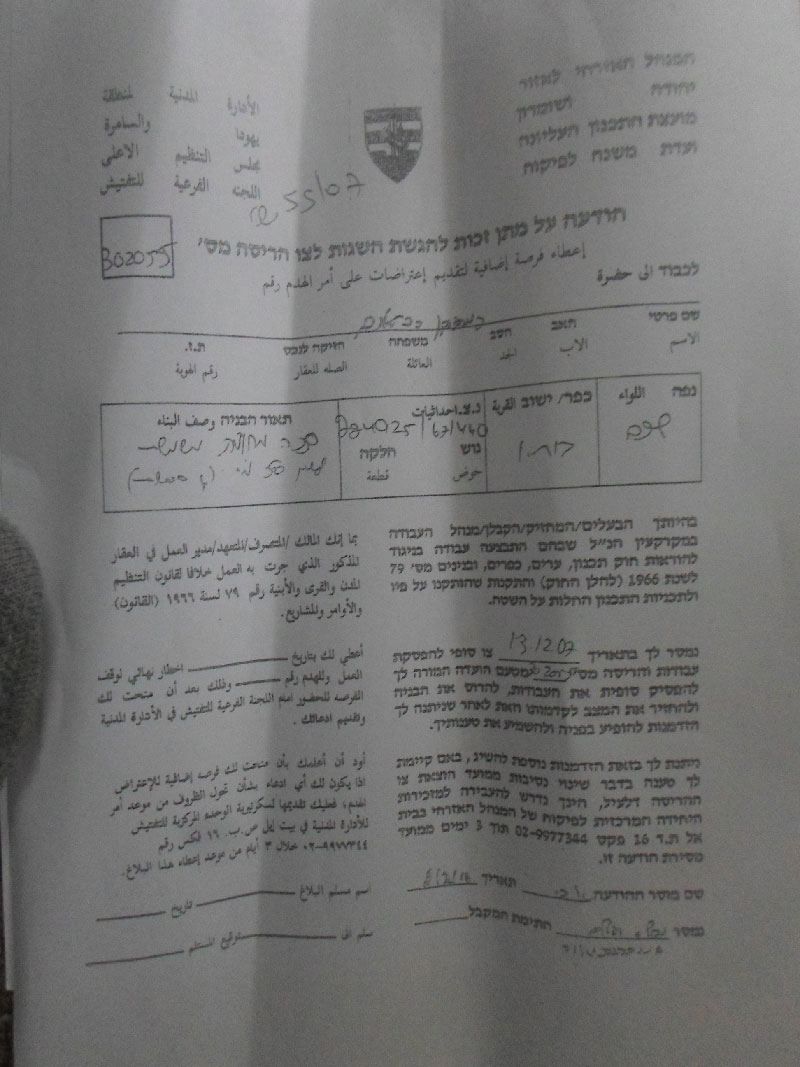 המנהל האזרחי לאזור
יהודה ושומרון
מועצת התכנון העליונה
ועדת משנה לפיקוח
الأدارة المدنية لمنطقة
يهودا والسامرة
مجلس التنظيم الاعلى
اللجنه الفرعية للتفتيش
55/07
הודעה על מתן זכות להגשת השגות לצו הריסה מס'
302055
إعطاء فرصة إضافية لتقديم إعتراضات على أمر الهدم رقم
לכבוד الى حضرة
שם פרטי האב הסב משפחה הזיקה לנכס ת.ז.
الاسم الاب الجد العائلة الصله للعقار رقم الهوية
נפה اللواء
שכם
כפר/ ישוב القرية
נ.צ. احداثيات
גוש חלקה
حوض قطعة
תאור הבניה وصف البناء
בהיותך הבעלים/המחזיק/הקבלן/מנהל העבודה
במקרקעין הנ"ל שבהם התבצעה עבודה בניגוד
להוראות חוק תכנון, ערים, כפרים, ובנינים מס' 79
לשנת 1966 (להלן החוק) והתקנות שהותקנו על פיו
ולתכניות התכנון החלות על השטח.
נמסר לך בתאריך 13.12.07 צו סופי להפסקת
עבודות והריסה מס' מטעם הועדה המורה לך
להפסיק סופית את העבודות, להרוס את הבניה
ולהחזיר את המצב לקדמותו וזאת לאחר שניתנה לך
הזדמנות להופיע בפניה ולהשמיע את טענותיך.
ניתנת לך בזאת הזדמנות נוספת להשיג, באם קיימת
לך טענה בדבר שינוי נסיבות ממועד הוצאת צו
ההריסה דלעיל, הינך נדרש להעבירה למזכירות
היחידה המרכזית לפיקוח של המנהל האזרחי בבית
אל ת.ד 16 פקס 02-9977344 תוך 3 ימים ממועד
מסירת הודעה זו.
שם מוסר ההודעה תאריך
נמסר חתימת המקבל
بما إنك المالك /المتصرف/المتعهد/مدير العمل في العقار
المذكور الذي جرت به العمل خلافا لقانون التنظيم
المدن والقرى والأبنية رقم ٧٩ لسنة ١٩٦٦ (القانون)
والأوامر والمشاريع.
أعطي لك بتاريخ اخطار نهائي لوقف
العمل وللهدم رقم وذلك بعد أن منحت لك
الفرصه للحضور امام اللجنة الفرعية للتفتيش في الأدارة المدنية
وتقديم ادعائك.
أود أن أعلمك بأن منحت لك فرصه إضافية للإعتراض
اذا يكون لك أي ادعاء بشأن تحول الظروف من موعد أمر
الهدم، فعليك تقديمها لسكرتيرية الوحده المركزية للتفتيش
للأدارة المدنية في بيت إيل ص.ب. ١٦ فاكس رقم
٠٢-٩٩٧٧٣٤٤ خلال ٣ أيام من موعد إعطاء هذا البلاغ.
اسم مسلم البلاغ تاريخ
سلم الى توقيع المستلم